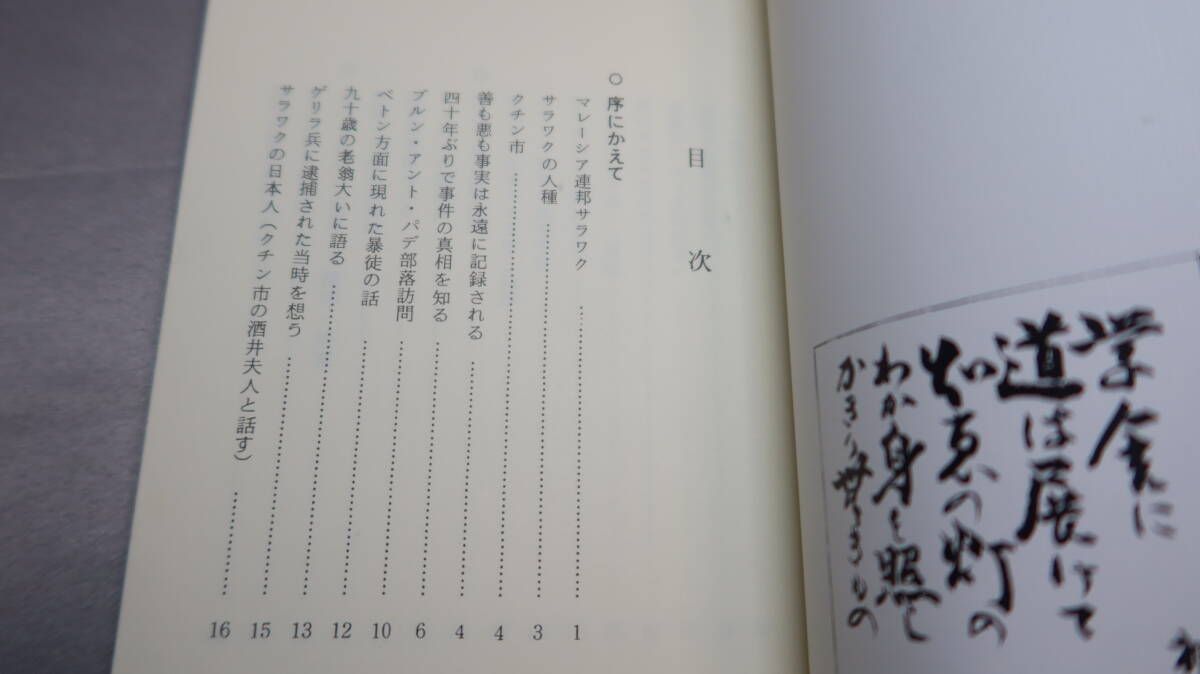 学舎に
道は展けて
知恵の灯の
わか身を照し
目次
○ 序にかえて
マレーシア連邦サラワク …… 1
サラワクの人種 …… 3
クチン市 …… 4
善も悪も事実は永遠に記録される …… 4
四十年ぶりで事件の真相を知る …… 6
ブルン・アント・パデ部落訪問 …… 10
ベトン方面に現れた暴徒の話 …… 12
九十歳の老翁大いに語る …… 13
ゲリラ兵に逮捕された当時を想う …… 15
サラワクの日本人（クチン市の酒井夫人と話す） …… 16